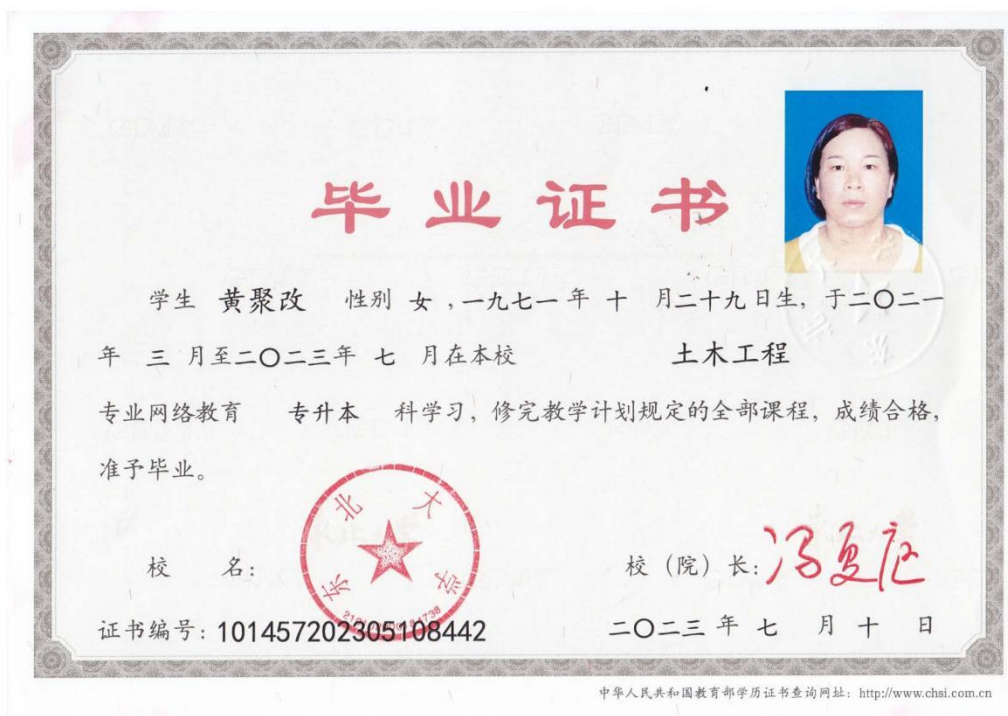 毕业证书
学生 黄聚改 性别 女 ,一九七一 年 十 月二十九日生, 于二〇二一
年 三 月至二〇二三年 七 月在本校 土木工程
专业网络教育 专升本 科学习, 修完教学计划规定的全部课程, 成绩合格,
准予毕业。
东北大学
校 名:
校 (院) 长: 冯夏庭
证书编号: 101457202305108442
二〇二三 年 七 月 十 日
中华人民共和国教育部学历证书查询网址: http://www.chsi.com.cn